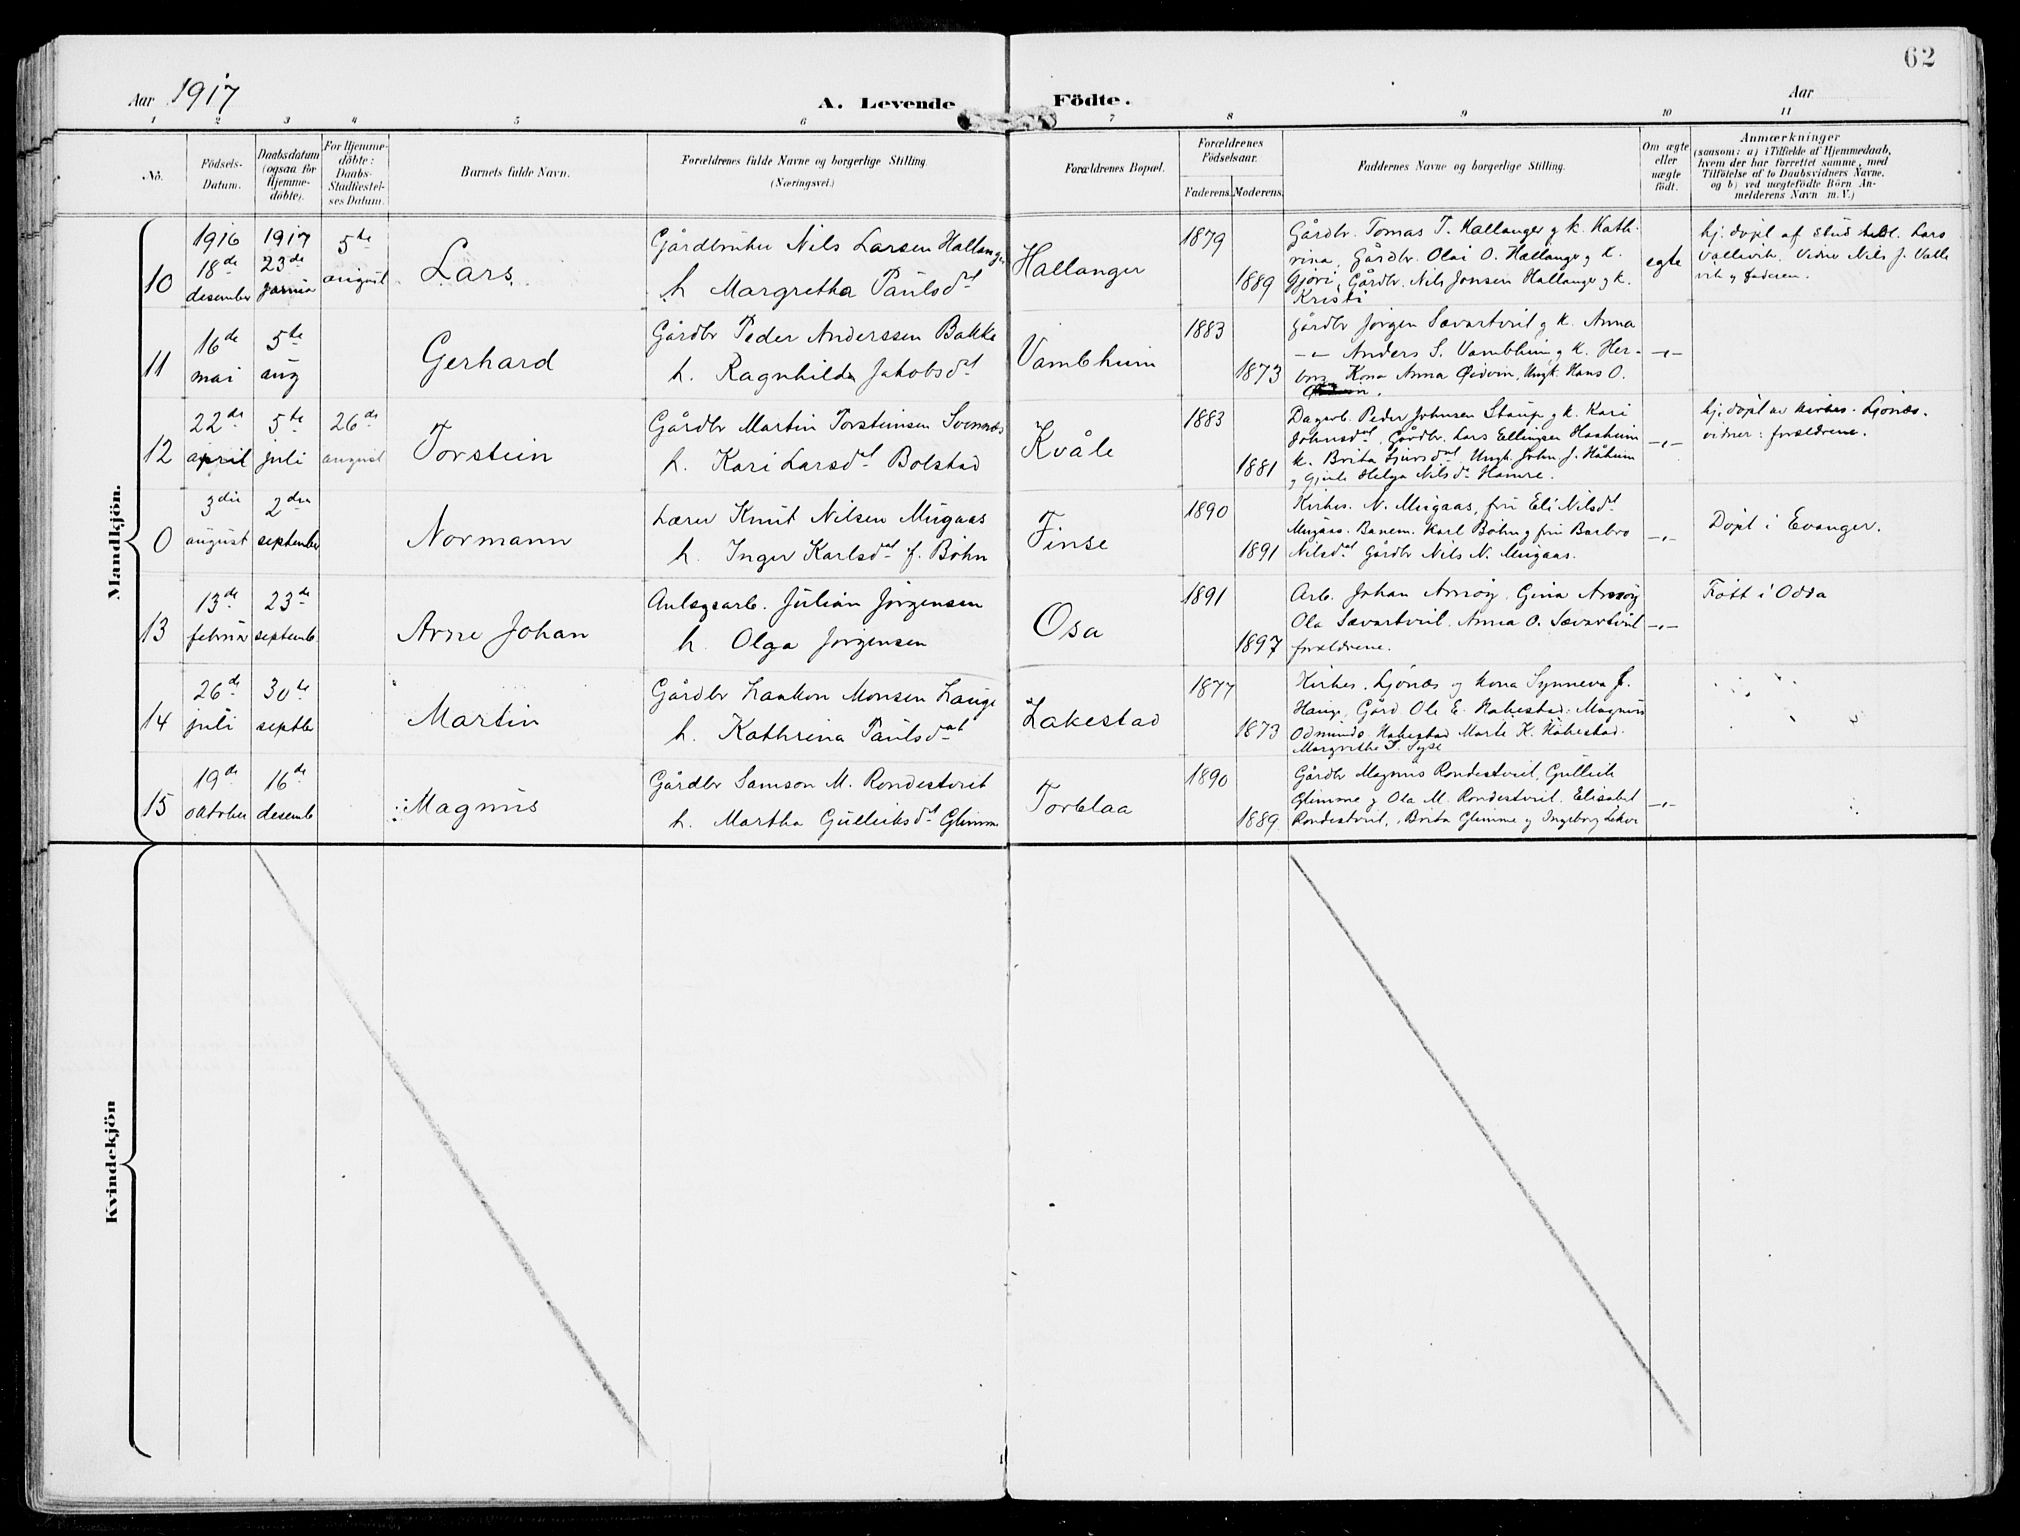 62
Aar 1917
A. Levende
Födte.
Aar
1 2 3 4 5 6 7 8 9 10 11
No.
Födsels-
Datum.
Daabsdatum
(ogsaa for
Hjemme-
döbte).
For Hjemme-
döbte:
Daabs-
Stadfæstel-
ses Datum.
Barnets fulde Navn.
Forældrenes fulde Navne og borgerlige Stilling
(Næringsvei.)
Forældrenes Bopæl.
Forældrenes
Födselsaar.
Faderens. Moderens.
Faddernes Navne og borgerlige Stilling.
Om ægte
eller
uægte
födt.
Anmærkninger
(saasom: a) i Tilfælde af Hjemmedaab,
hvem der har forrettet samme, med
Tilföielse af to Daabsvidners Navne.
og b) ved uægtefödte Börn An-
melderens Navn m. V.)
Mandkjön.
10
1916
18de
desember
1917
23de
januar
5te
august
Lars
Gårdbruker Nils Larsen Hallanger
h. Margretha Paulsdt
Hallanger
1879
1889
Gårdbr. Tomas T. Hallanger g k. Kath-
rina, Gårdbr. Olai O. Hallanger g k.
Gjøri, Gårdbr. Nils Jonsen Hallanger g k.
Kristi
egte
hj. døpt af stud. Lars
Vallevik. Vidner Nils J. Valle
vik g faderen.
11
16de
mai
5te
aug
Gerhard
Gårdbr Peder Anderssen Bakke
h. Ragnhilda Jakobsdt
Vambheim
1883
1873
Gårdbr Jørgen Sævartveit g k. Anna
-"- Anders S. Vambheim g k. Her-
borg Kona Anna Øydvin, Ungk. Hans O.
-"-
12
22de
april
5te
juli
26de
august
Torstein
Gårdbr Martin Torsteinsen Svennæs
h. Kari Larsdat Bolstad
Kvåle
1883
1881
Dagarb. Peder Johnsen Staup g k. Kari
Johnsdat, Gårdbr. Lars Ellingsen Håheim
k. Brita Sjursdat, Ungk. John J. Håheim
g Gjente Helga Nilsdt Hamre.
-"-
hj. døpt av kirkes. Ljønes.
vitner: forældrene.
0
3die
august
2den
september
Normann
Lærer Knut Nilsen Mugaas
h. Inger Karlsdat f. Bøhn
Finse
1890
1891
Kirkes. N. Mugaas, fru Eli Nilsdt
Mugaas. Banem. Karl Bøhn g fru Barbro
Nilsdat Gårdbr Nils N. Mugaas.
-"-
Døpt i Evanger.
13
13de
februar
23de
septemb
Arne Johan
Anlægsarb. Julian Jørgensen
h. Olga Jørgensen
Osa
1891
1897
Arb. Johan Arnsøy, Gina Arnsøy
Ola Sævartveit. Anna O. Sævartveit
forældrene.
-"-
Føtt i Odda
14
26de
juli
30te
septbr
Martin
Gårdbr Haakon Monsen Hauge
h. Kathrina Paulsdat
Håkestad
1877
1873
Kirkes. Ljønæs og kona Synneva J.
Hauge, Gård. Ole E. Håkestad. Magnus
Odmunds. Håkestad Marte K. Håkestad.
Margrethe T. Syse
15
19de
oktober
16de
desemb
Magnus
Gårdbr Samson M. Rondestveit
h. Martha Gulleiksdt Glimme
Torblaa
1890
1889
Gårdbr Magnus Rondestveit, Gulleik
Glimme g Ola M. Rondestveit. Elisabet
Rondestveit, Brita Glimme g Ingeborg Lekve
-"-
Kvindekjön